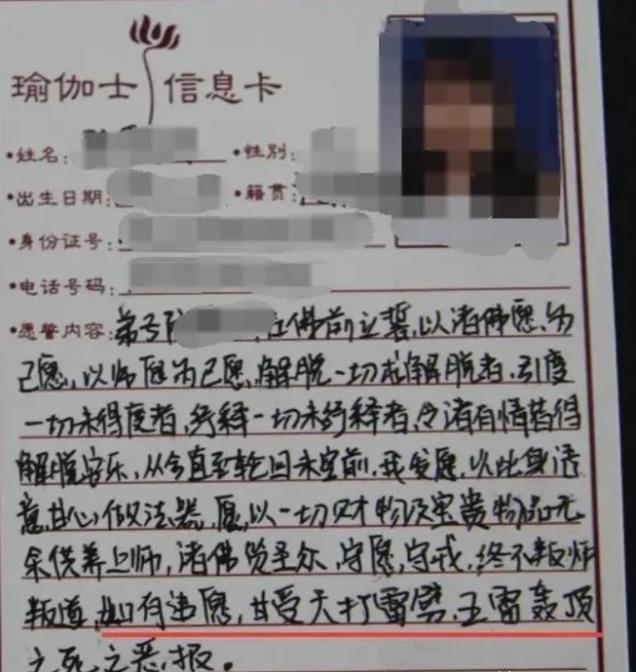 瑜伽士 信息卡
•姓名: •性别:
•出生日期: •籍贯:
•身份证号:
•电话号码:
•愿誓内容: 弟子 在佛前立誓,以诸佛愿为
己愿,以师愿为己愿,解脱一切求解脱者,引度
一切未得度者,纾释一切未纾释者,令诸有情皆得
解脱安乐,从今直至轮回未空前,我发愿,以此身语
意甘心做法器,愿以一切财物及宝贵物品无
余供养上师,诸佛贤圣众,守愿,守戒,终不叛师
叛道,如有违愿,甘受天打雷劈,五雷轰顶
之死之恶报。